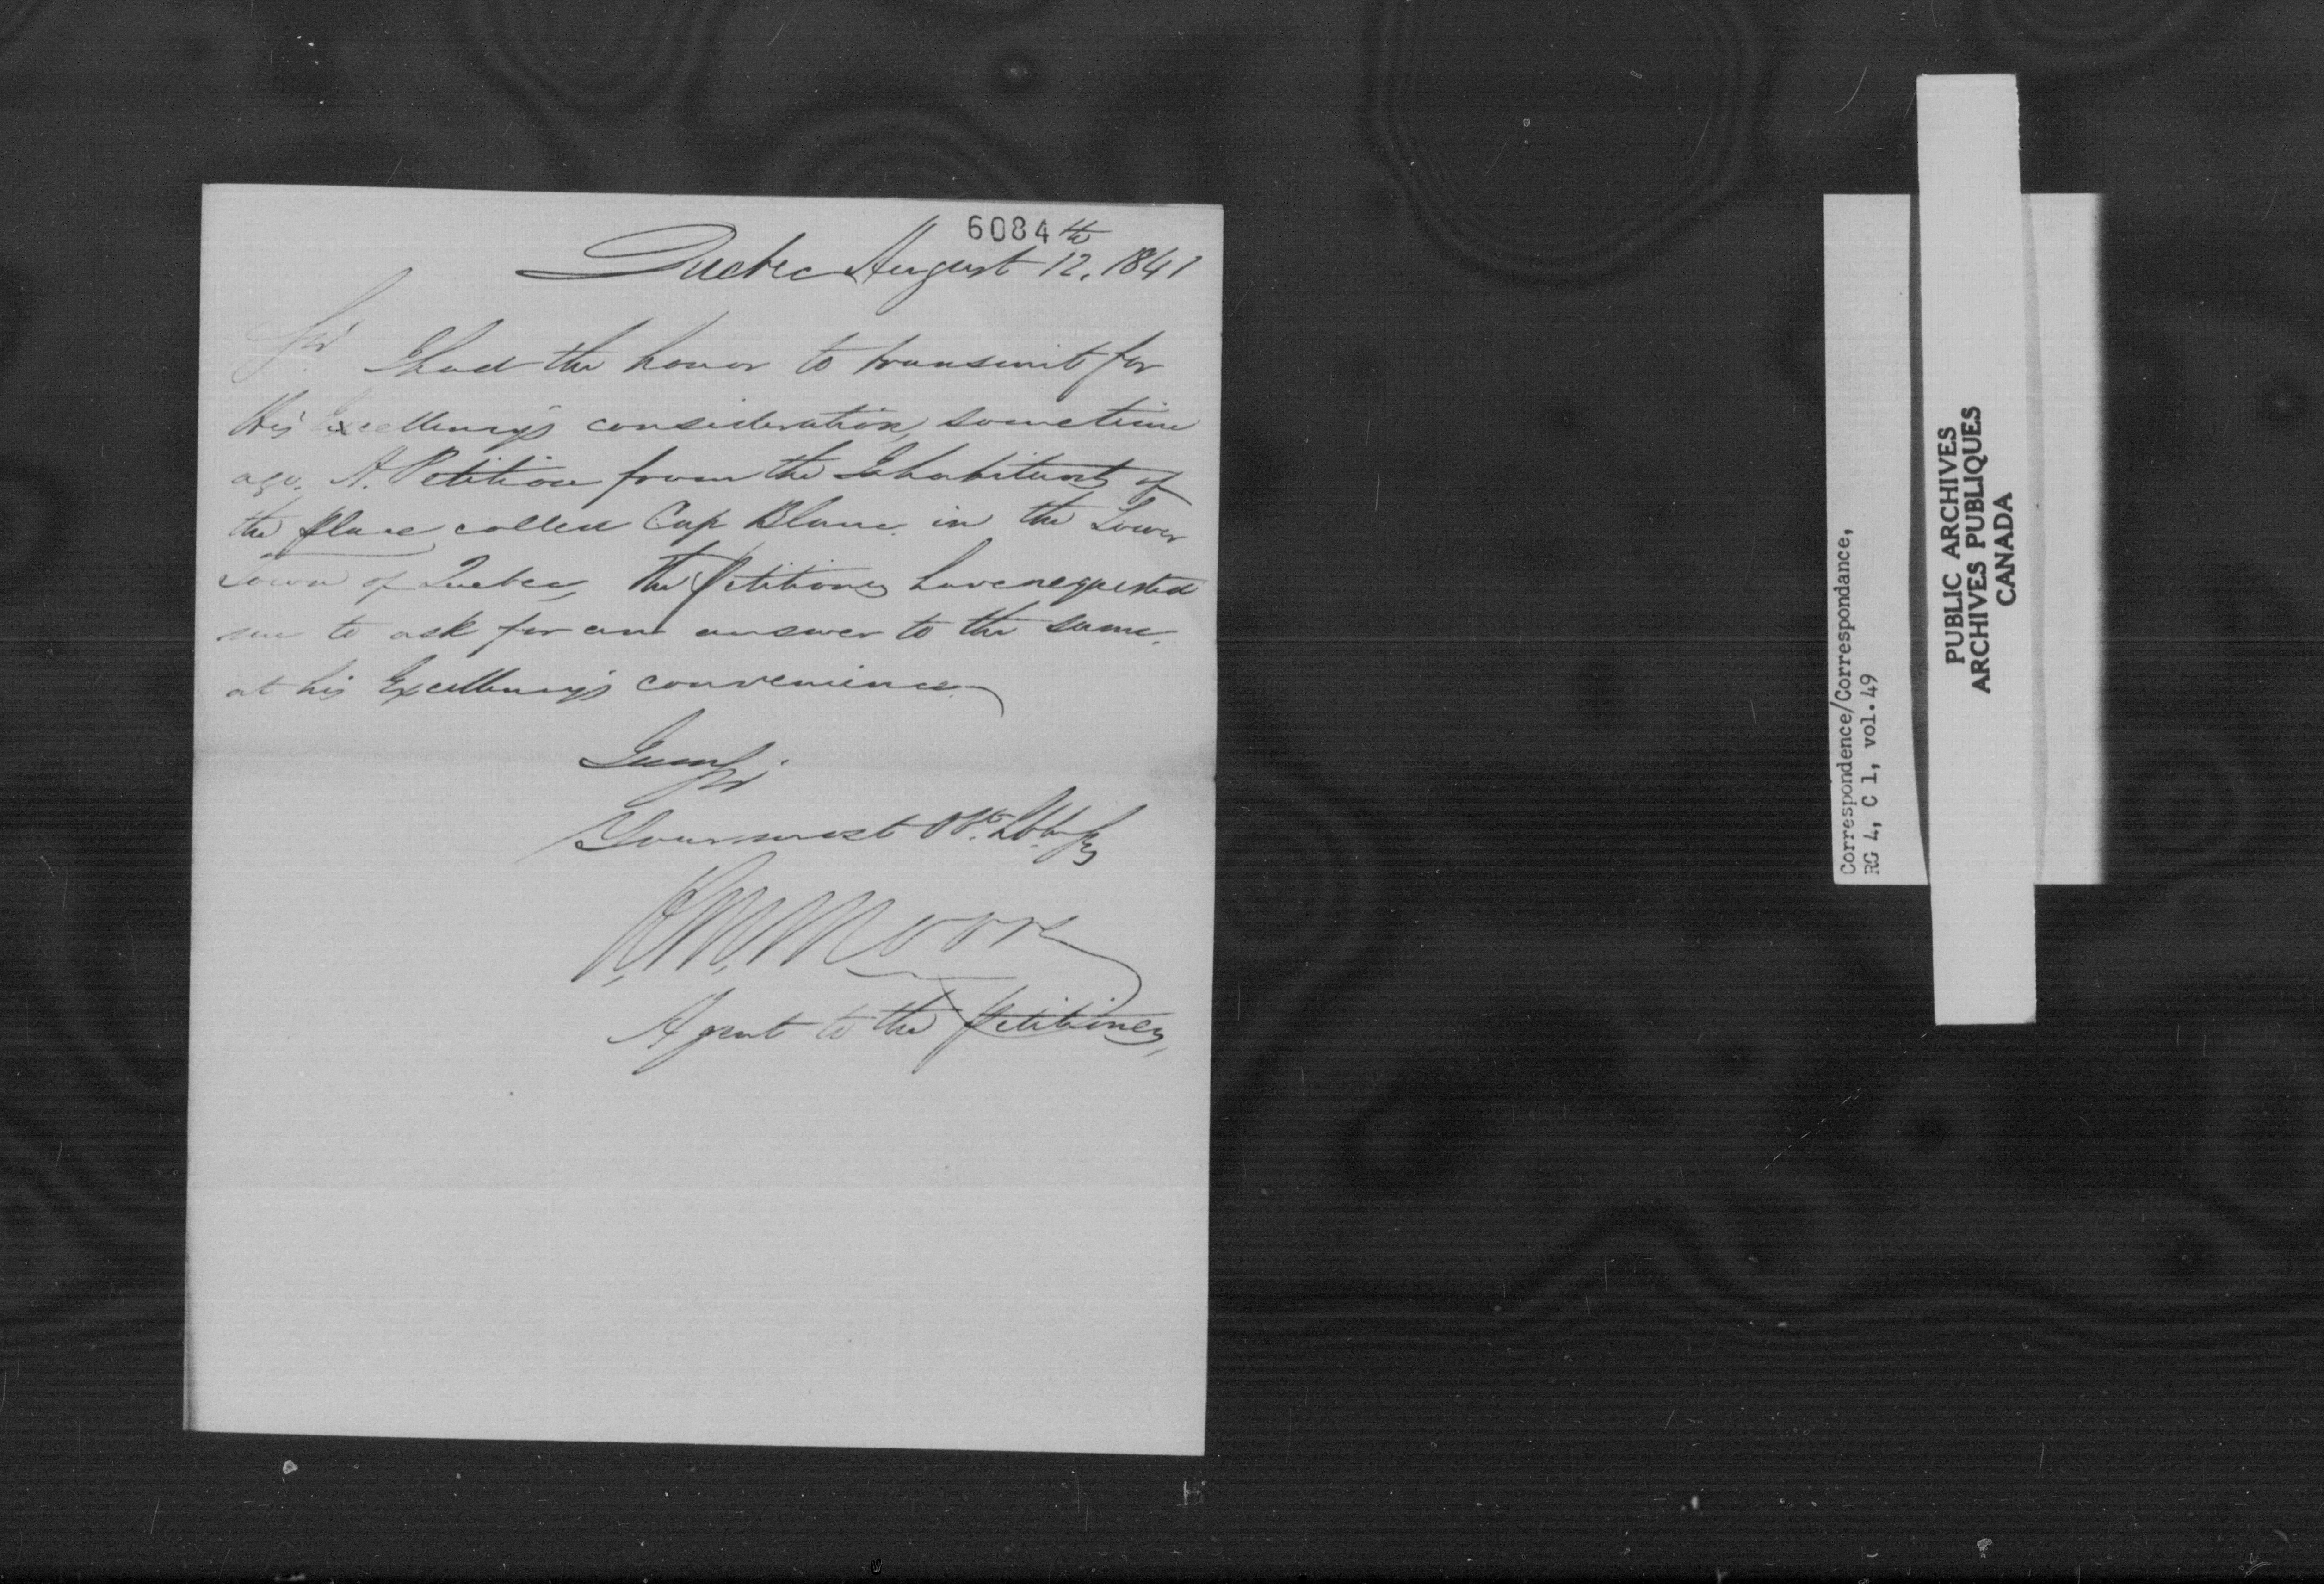 6084
Quebec August 12th, 1841
Sir
I had the honor to transmit for
His Excellency's consideration, sometime
ago, A Petition from the Inhabitants of
the place called Cap Blanc in the Lower
Town of Quebec, The Petitioners have requested
me to ask for an answer to the same
at his Excellency's convenience
I am Sir
Your most Obt.
Moore
Agent to the Petitioners,
Correspondence/Correspondance,
RG 4, C 1, vol. 49
PUBLIC ARCHIVES
ARCHIVES PUBLIQUES
CANADA